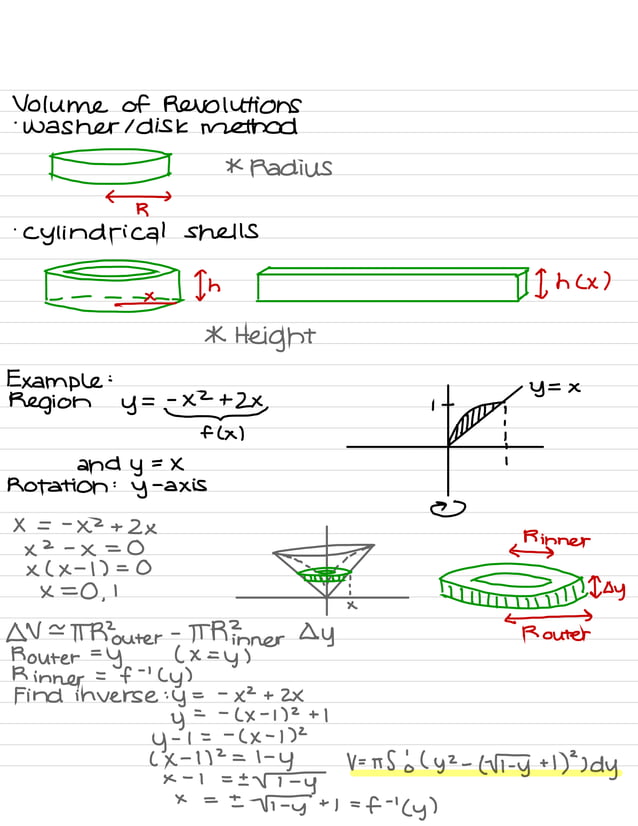 Volume of Revolutions
· washer/disk method
* Radius
R
· cylindrical shells
x
h
h(x)
* Height
Example:
Region y = -x² + 2x
f(x)
and y = x
Rotation: y-axis
1
y = x
1
x = -x² + 2x
x² - x = 0
x(x-1) = 0
x = 0, 1
x
Rinner
Δy
Router
ΔV ≃ πR²outer - πR²inner Δy
Router = y (x = y)
Rinner = f⁻¹(y)
Find inverse: y = -x² + 2x
y = -(x-1)² + 1
y-1 = -(x-1)²
(x-1)² = 1-y
x-1 = ±√1-y
x = ±√1-y + 1 = f⁻¹(y)
V = π∫₀¹(y² - (√1-y + 1)²)dy